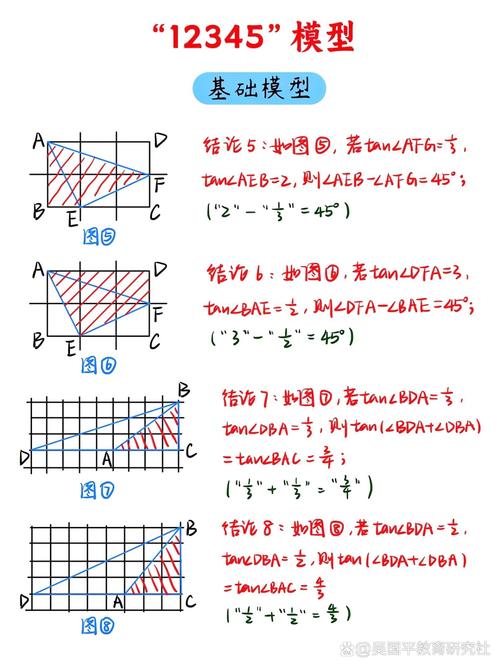 “12345”模型
基础模型
A D
F
B E C
图⑤
结论5:如图⑤,若tan∠AFG=1/3,
tan∠AEB=2,则∠AEB-∠AFG=45°;
("2"-"1/3"=45°)
A D
F
B E C
图⑥
结论6:如图⑥,若tan∠DFA=3,
tan∠BAE=1/2,则∠DFA-∠BAE=45°;
("3"-"1/2"=45°)
B
D A C
图⑦
结论7:如图⑦,若tan∠BDA=1/3,
tan∠DBA=1/3,则tan(∠BDA+∠DBA)
=tan∠BAC=3/4;
("1/3"+"1/3"="3/4")
B
D A C
图⑧
结论8:如图⑧,若tan∠BDA=1/2,
tan∠DBA=1/2,则tan(∠BDA+∠DBA)
=tan∠BAC=4/3
("1/2"+"1/2"=4/3)
搜狐号@吴国平教育研究社